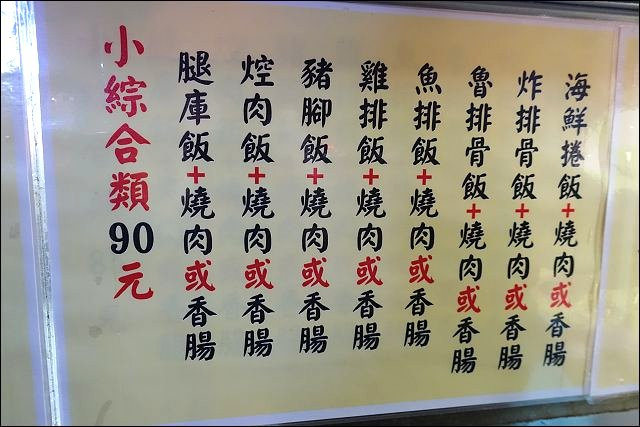 小綜合類90元
腿庫飯+燒肉或香腸
焢肉飯+燒肉或香腸
豬腳飯+燒肉或香腸
雞排飯+燒肉或香腸
魚排飯+燒肉或香腸
魯排骨飯+燒肉或香腸
炸排骨飯+燒肉或香腸
海鮮捲飯+燒肉或香腸